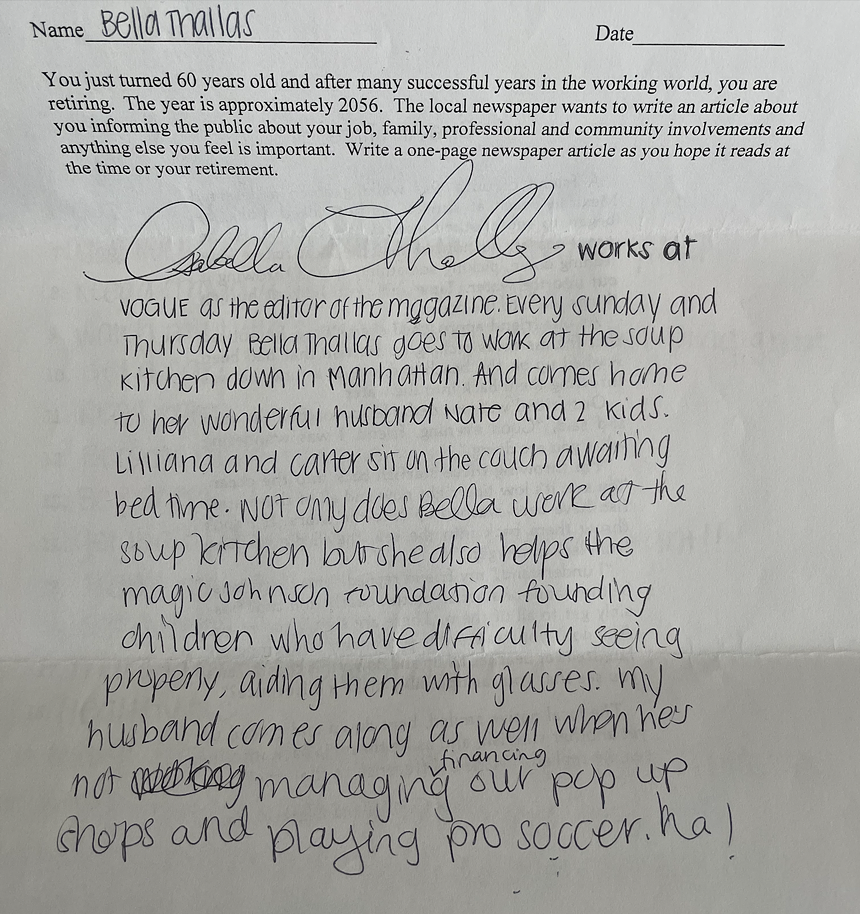 Name Bella Thallas Date
You just turned 60 years old and after many successful years in the working world, you are
retiring. The year is approximately 2056. The local newspaper wants to write an article about
you informing the public about your job, family, professional and community involvements and
anything else you feel is important. Write a one-page newspaper article as you hope it reads at
the time or your retirement.
Isabella Thallas works at
VOGUE as the editor of the magazine. Every sunday and
Thursday Bella Thallas goes to work at the soup
kitchen down in Manhattan. And comes home
to her wonderful husband Nate and 2 kids.
Lilliana and carter sit on the couch awaiting
bed time. Not only does Bella work at the
soup kitchen but she also helps the
magic Johnson foundation founding
children who have difficulty seeing
properly, aiding them with glasses. my
husband comes along as well when he's
not managing financing our pop up
shops and playing pro soccer. ha!